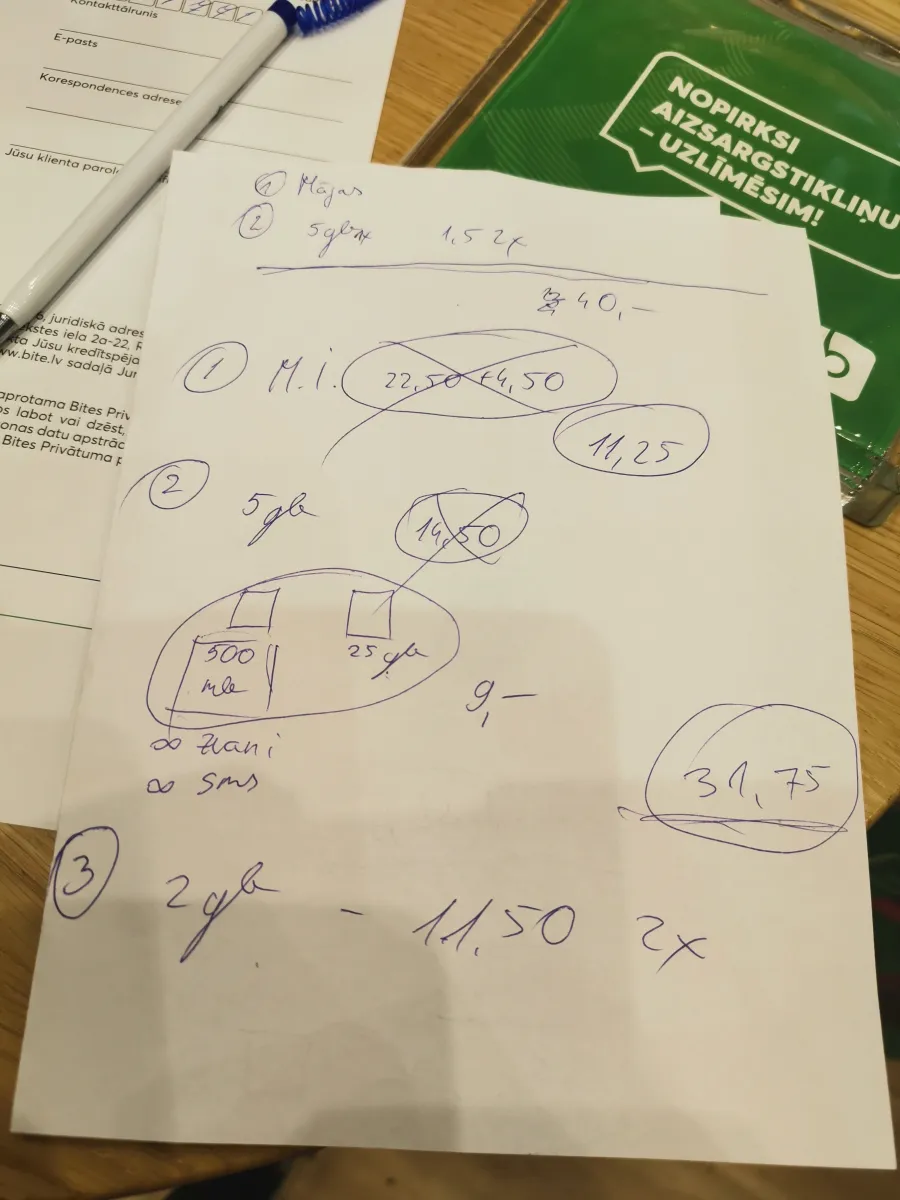 Kontakttālrunis
E-pasts
Korespondences adrese
Jūsu klienta parol
NOPIRKSI
AIZSARGSTIKLIŅU
– UZLĪMĒSIM!
① Mājas
② 5gb 1,5 2x
40,–
① M.I. 22,50 +4,50
11,25
② 5gb 14,50
500 mb
25 gb
9,–
∞ zvani
∞ sms
31,75
③ 2gb - 11,50 2x
, juridiskā adres
kstes iela 2a-22, R
ta Jūsu kredītspēja
ww.bite.lv sadaļā Jur
aprotama Bites Priv
os labot vai dzēst,
onas datu apstrād
Bites Privātuma p